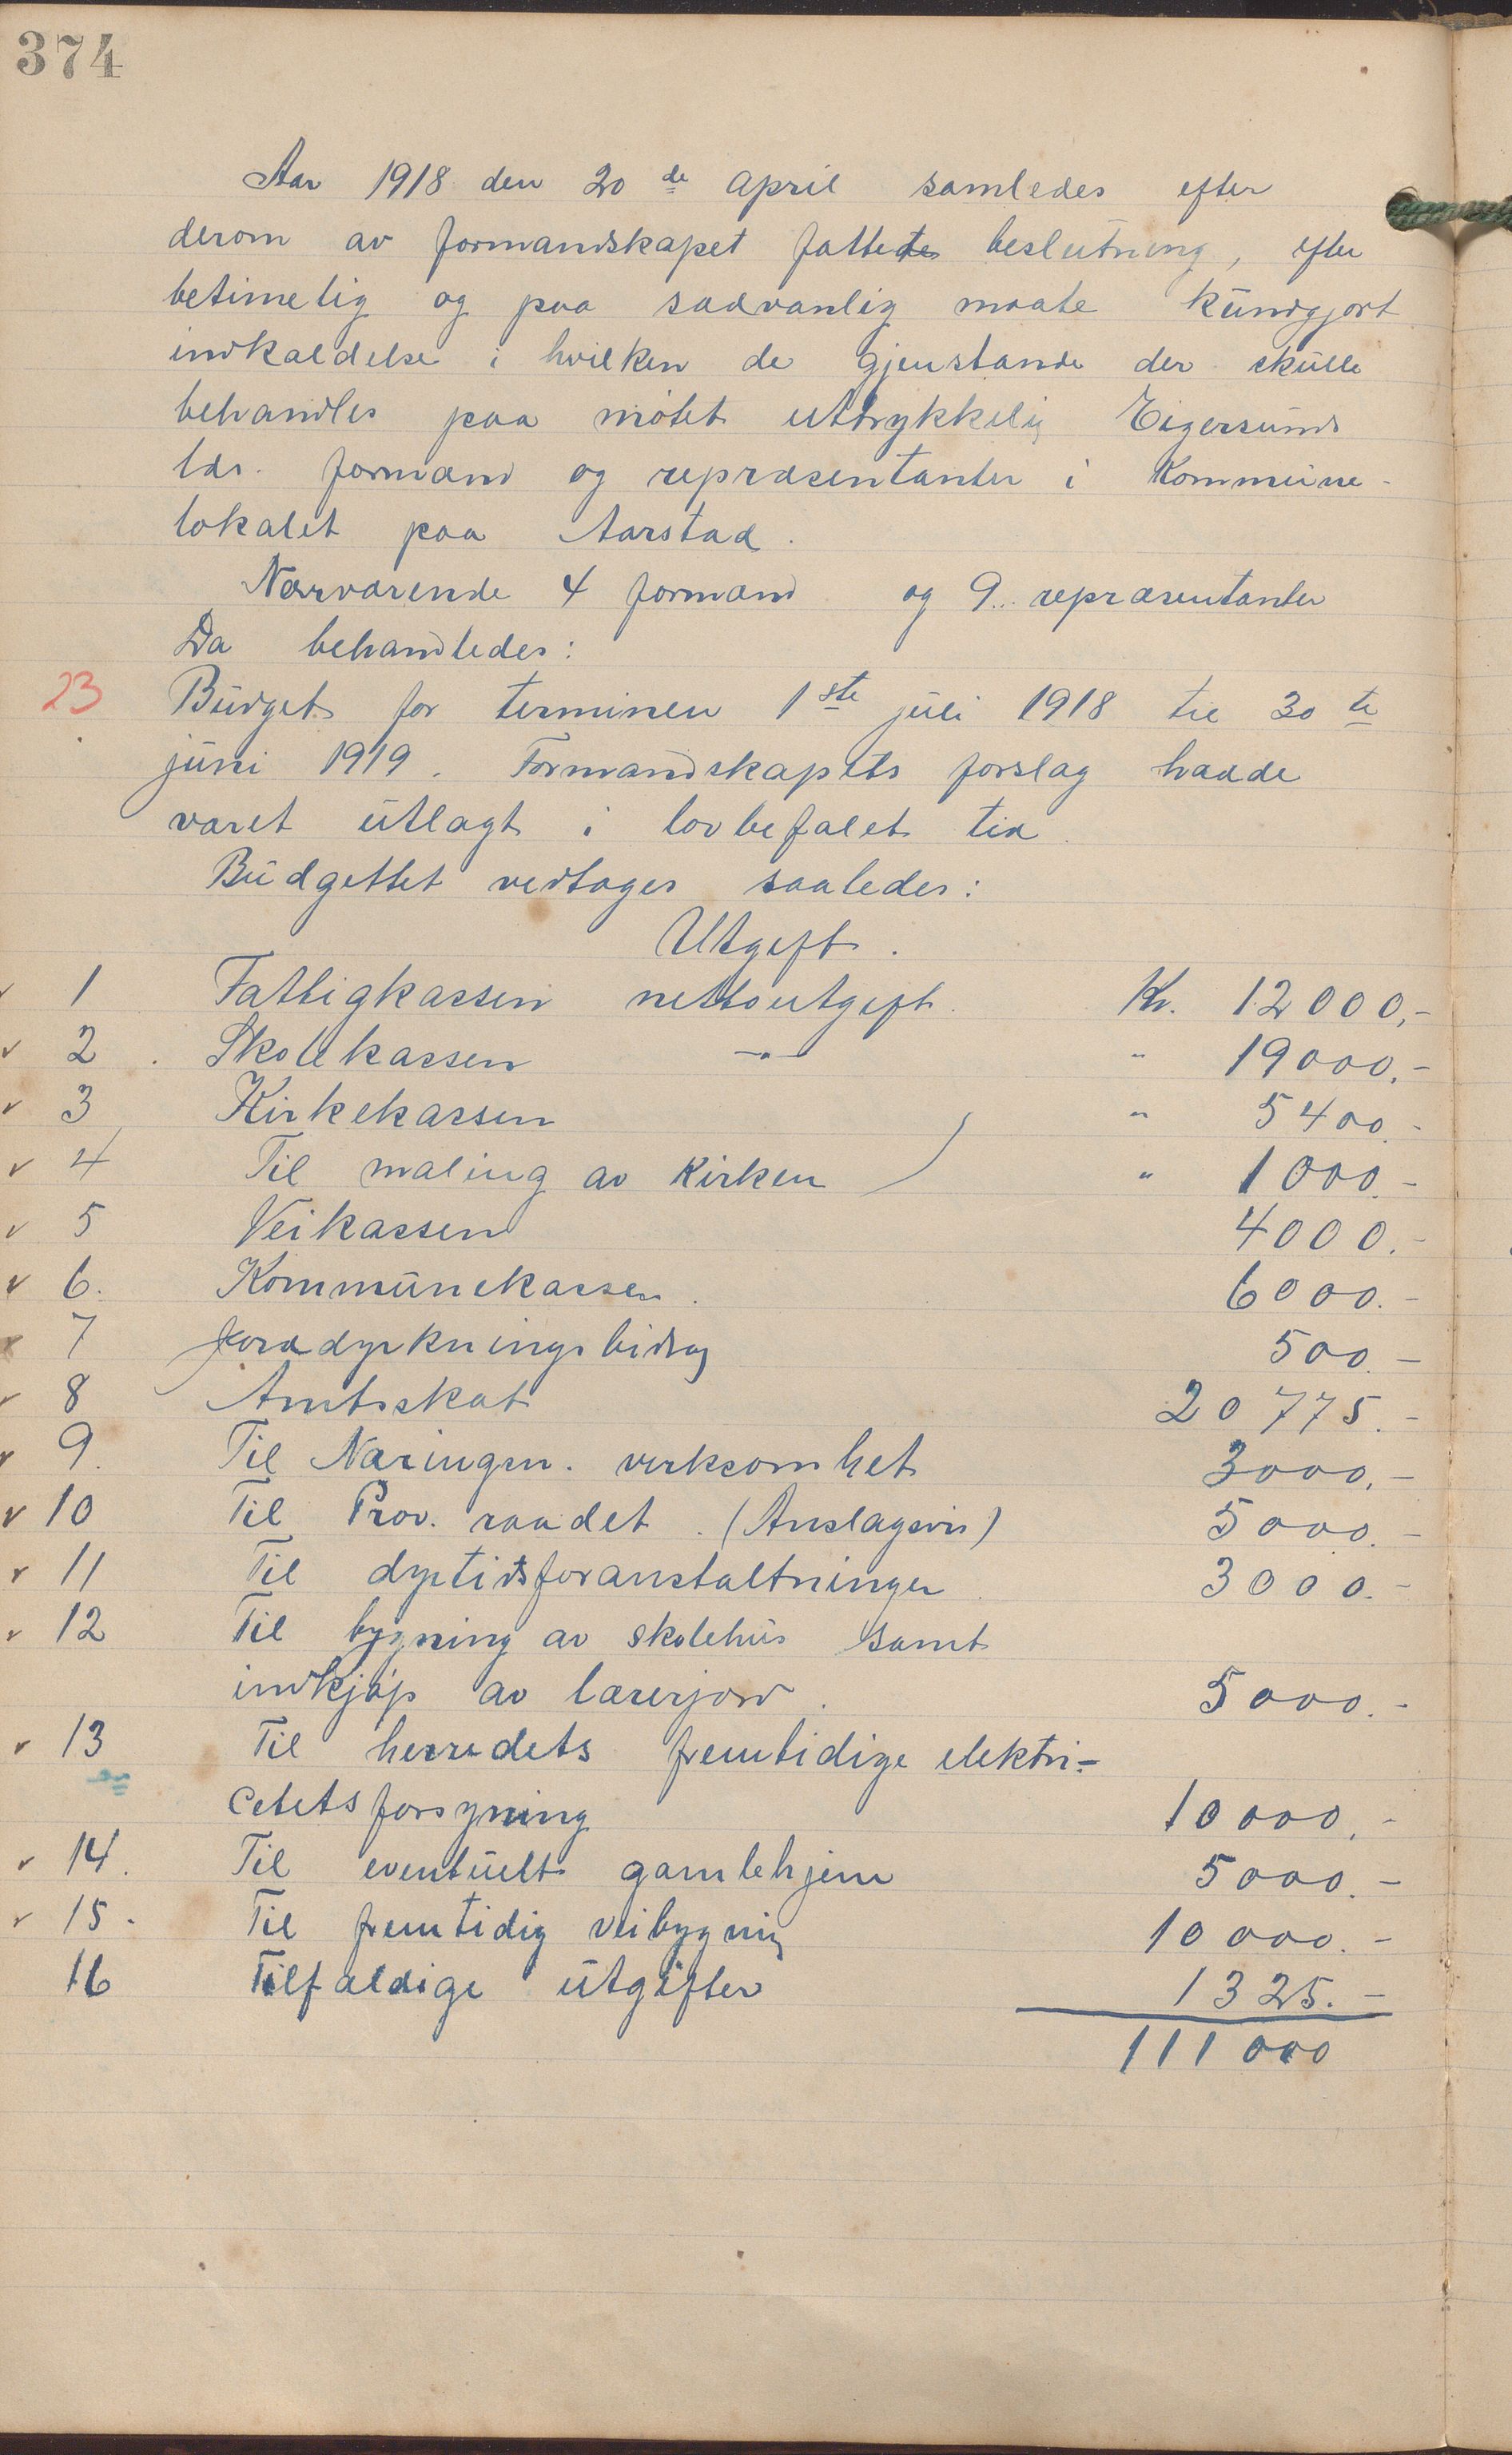 374
Aar 1918 den 20de april samledes efter
derom av formandskapet fattede beslutning, efter
betimelig og paa sædvanlig maate kundgjort
indkaldelse i hvilken de gjenstande der skulle
behandles paa møtet uttrykkelig Eigersunds
lds. formænd og repræsentanter i Kommune-
lokalet paa Aarstad.
Nærværende 4 formænd og 9 repræsentanter
Da behandledes:
23 Budget for terminen 1ste juli 1918 til 30te
juni 1919. Formandskapets forslag hadde
været utlagt i lovbefalet tid.
Budgettet vedtages saaledes:
Utgift.
1 Fattigkassen nettoutgift. Kr. 12000,-
2 Skolekassen -"- " 19000,-
3 Kirkekassen " 5400.-
4 Til maling av Kirken " 1000.-
5 Veikassen 4000.-
6. Kommunekassen. 6000.-
7 Jorddyrkningsbidrag 500.-
8 Amtsskat 20775.-
9. Til Næringsn. virksomhet 3000,-
10 Til Prov. raadet. (Anslagsvis) 5000.-
11 Til dyrtidsforanstaltninger 3000.-
12 Til bygning av skolehus samt
indkjøp av lærerjord. 5000.-
13 Til herredets fremtidige elektri-
citetsforsyning 10000.-
14. Til eventuelt gamlehjem 5000.-
15. Til fremtidig veibygning 10000.-
16 Tilfældige utgifter 1325.-
111000